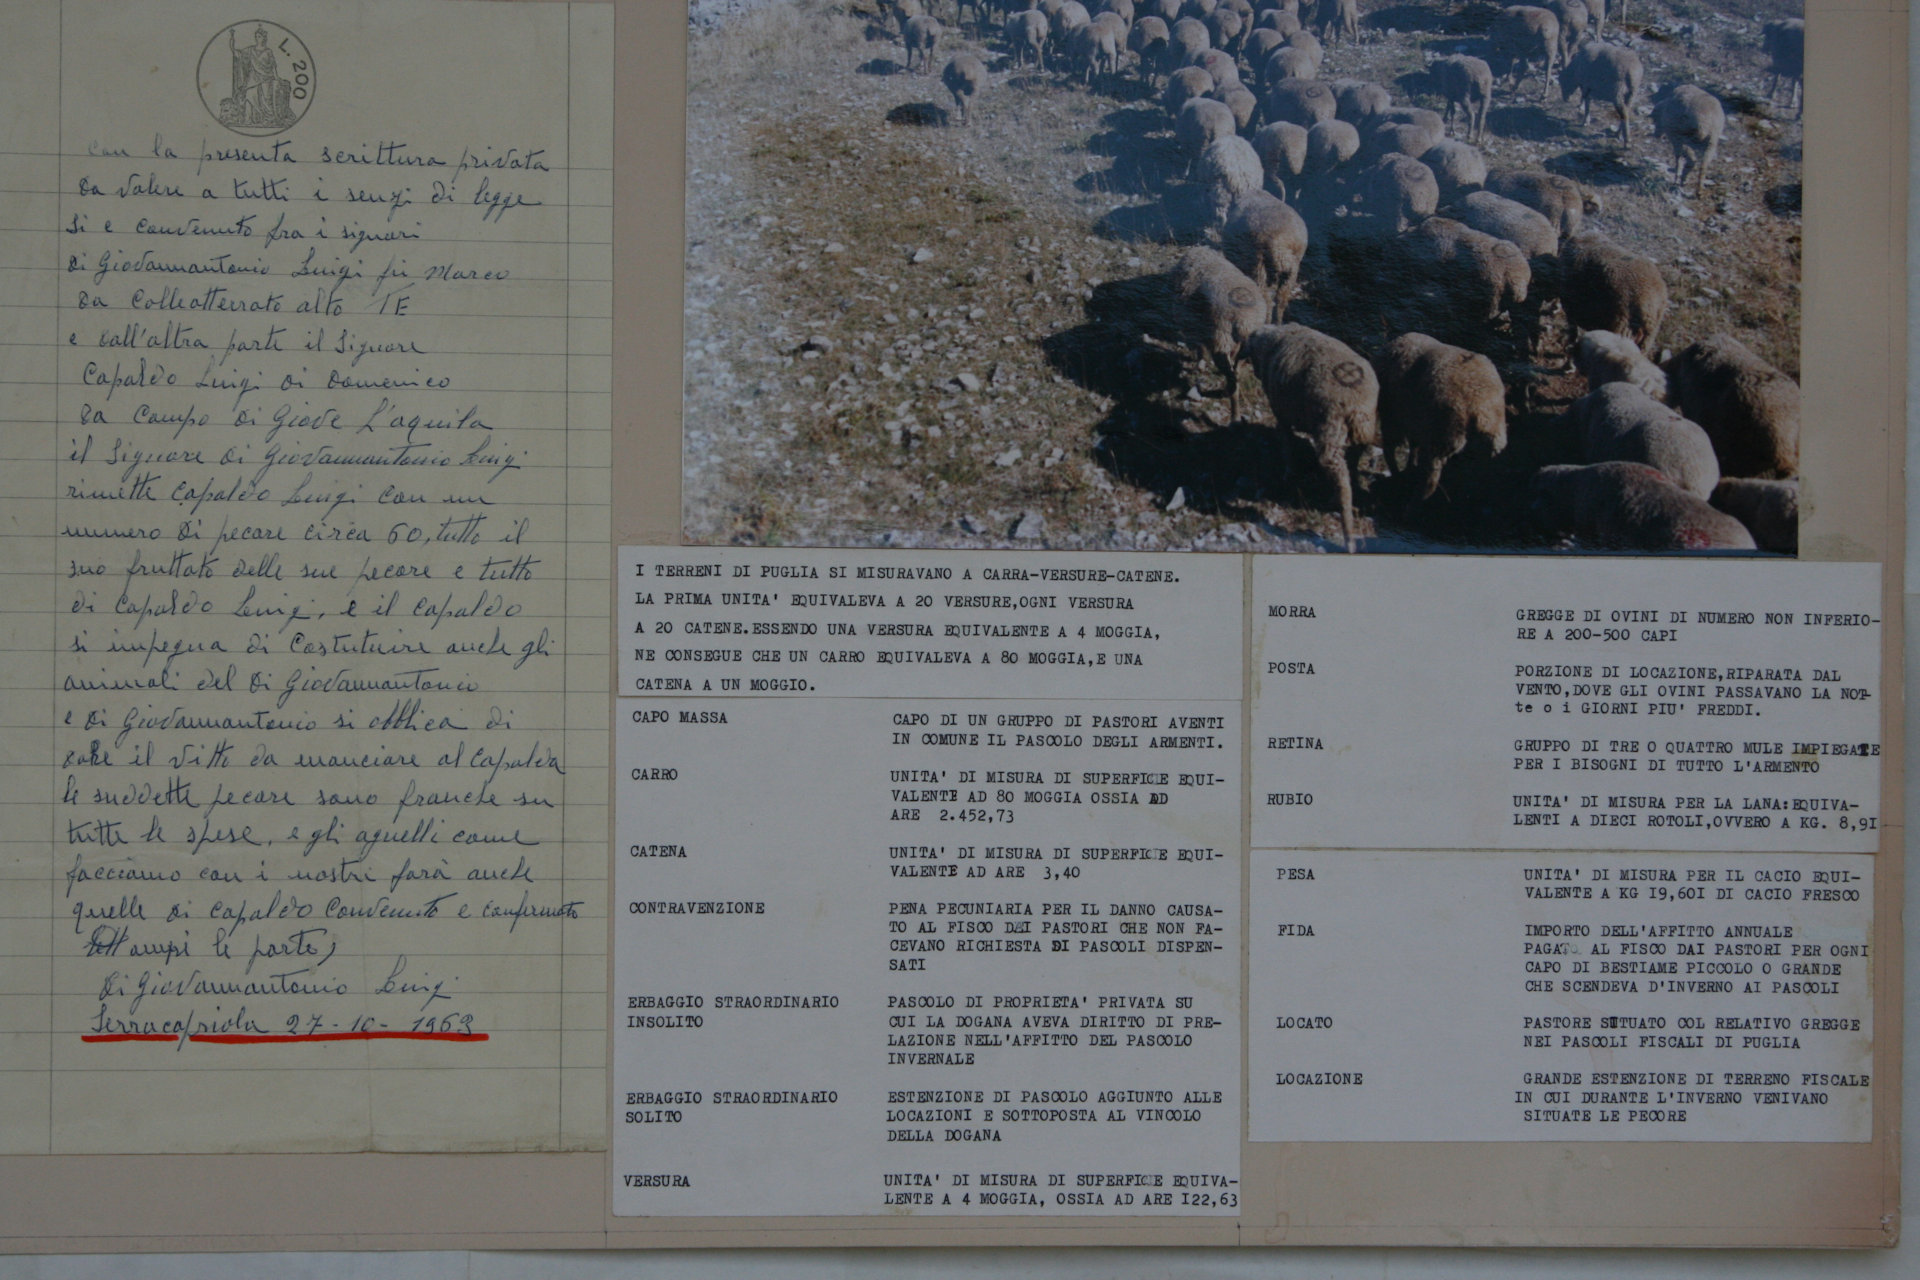 L. 200
con la presenta scrittura privata
da valere a tutti i senzi di legge
si e convenuto fra i signori
di Giovannantonio Luigi fu Marco
da Colleatterrato alto TE
e dall'altra parte il Signore
Capaldo Luigi di Domenico
da Campo di Giove L'aquila
il Signore di Giovannantonio Luigi
rimette Capaldo Luigi con un
numero di pecore circa 60, tutto il
suo fruttato delle sue pecore e tutto
di Capaldo Luigi, e il Capaldo
si impegna di Costutuire anche gli
animali del di Giovannantonio
e di Giovannantonio si obblica di
dare il vitto da manciare al Capaldo
le suddette pecore sano franche su
tutte le spese, e gli agnelli come
facciamo con i nostri farà anche
quelle di Capaldo Convenuto e confermato
le parte)
di Giovannantonio Luigi
Serracapriola 27-10-1963
I TERRENI DI PUGLIA SI MISURAVANO A CARRA-VERSURE-CATENE.
LA PRIMA UNITA' EQUIVALEVA A 20 VERSURE,OGNI VERSURA
A 20 CATENE.ESSENDO UNA VERSURA EQUIVALENTE A 4 MOGGIA,
NE CONSEGUE CHE UN CARRO EQUIVALEVA A 80 MOGGIA,E UNA
CATENA A UN MOGGIO.
CAPO MASSA CAPO DI UN GRUPPO DI PASTORI AVENTI
IN COMUNE IL PASCOLO DEGLI ARMENTI.
CARRO UNITA' DI MISURA DI SUPERFICIE EQUI-
VALENTE AD 80 MOGGIA OSSIA AD
ARE 2.452,73
CATENA UNITA' DI MISURA DI SUPERFICIE EQUI-
VALENTE AD ARE 3,40
CONTRAVENZIONE PENA PECUNIARIA PER IL DANNO CAUSA-
TO AL FISCO DAI PASTORI CHE NON FA-
CEVANO RICHIESTA DI PASCOLI DISPEN-
SATI
ERBAGGIO STRAORDINARIO PASCOLO DI PROPRIETA' PRIVATA SU
INSOLITO CUI LA DOGANA AVEVA DIRITTO DI PRE-
LAZIONE NELL'AFFITTO DEL PASCOLO
INVERNALE
ERBAGGIO STRAORDINARIO ESTENZIONE DI PASCOLO AGGIUNTO ALLE
SOLITO LOCAZIONI E SOTTOPOSTA AL VINCOLO
DELLA DOGANA
VERSURA UNITA' DI MISURA DI SUPERFICIE EQUIVA-
LENTE A 4 MOGGIA, OSSIA AD ARE I22,63
MORRA GREGGE DI OVINI DI NUMERO NON INFERIO-
RE A 200-500 CAPI
POSTA PORZIONE DI LOCAZIONE,RIPARATA DAL
VENTO,DOVE GLI OVINI PASSAVANO LA NOT-
te o i GIORNI PIU' FREDDI.
RETINA GRUPPO DI TRE O QUATTRO MULE IMPIEGATE
PER I BISOGNI DI TUTTO L'ARMENTO
RUBIO UNITA' DI MISURA PER LA LANA:EQUIVA-
LENTI A DIECI ROTOLI,OVVERO A KG. 8,9I
PESA UNITA' DI MISURA PER IL CACIO EQUI-
VALENTE A KG I9,60I DI CACIO FRESCO
FIDA IMPORTO DELL'AFFITTO ANNUALE
PAGATO AL FISCO DAI PASTORI PER OGNI
CAPO DI BESTIAME PICCOLO O GRANDE
CHE SCENDEVA D'INVERNO AI PASCOLI
LOCATO PASTORE SITUATO COL RELATIVO GREGGE
NEI PASCOLI FISCALI DI PUGLIA
LOCAZIONE GRANDE ESTENZIONE DI TERRENO FISCALE
IN CUI DURANTE L'INVERNO VENIVANO
SITUATE LE PECORE